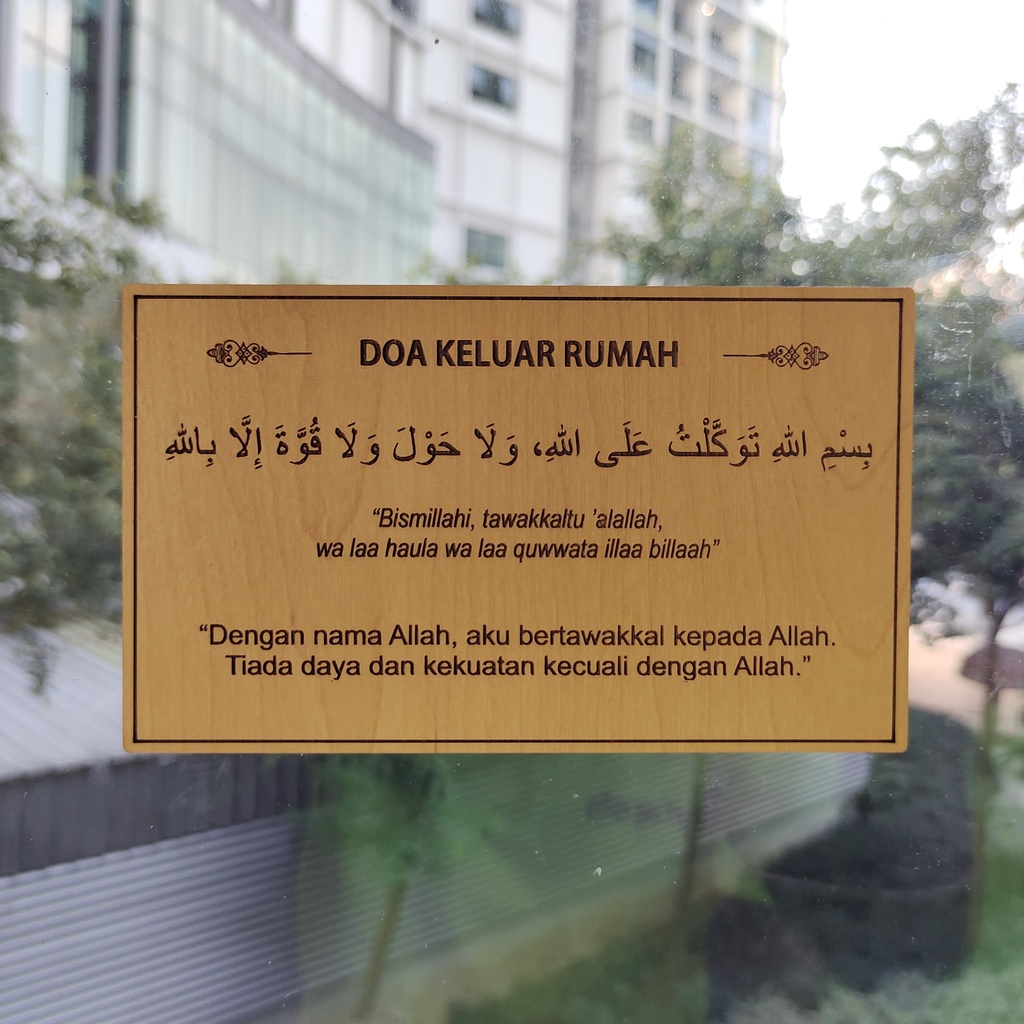 DOA KELUAR RUMAH
بِسْمِ اللهِ تَوَكَّلْتُ عَلَى اللهِ، وَلَا حَوْلَ وَلَا قُوَّةَ إِلَّا بِاللهِ
“Bismillahi, tawakkaltu ’alallah,
wa laa haula wa laa quwwata illaa billaah”
“Dengan nama Allah, aku bertawakkal kepada Allah.
Tiada daya dan kekuatan kecuali dengan Allah.”